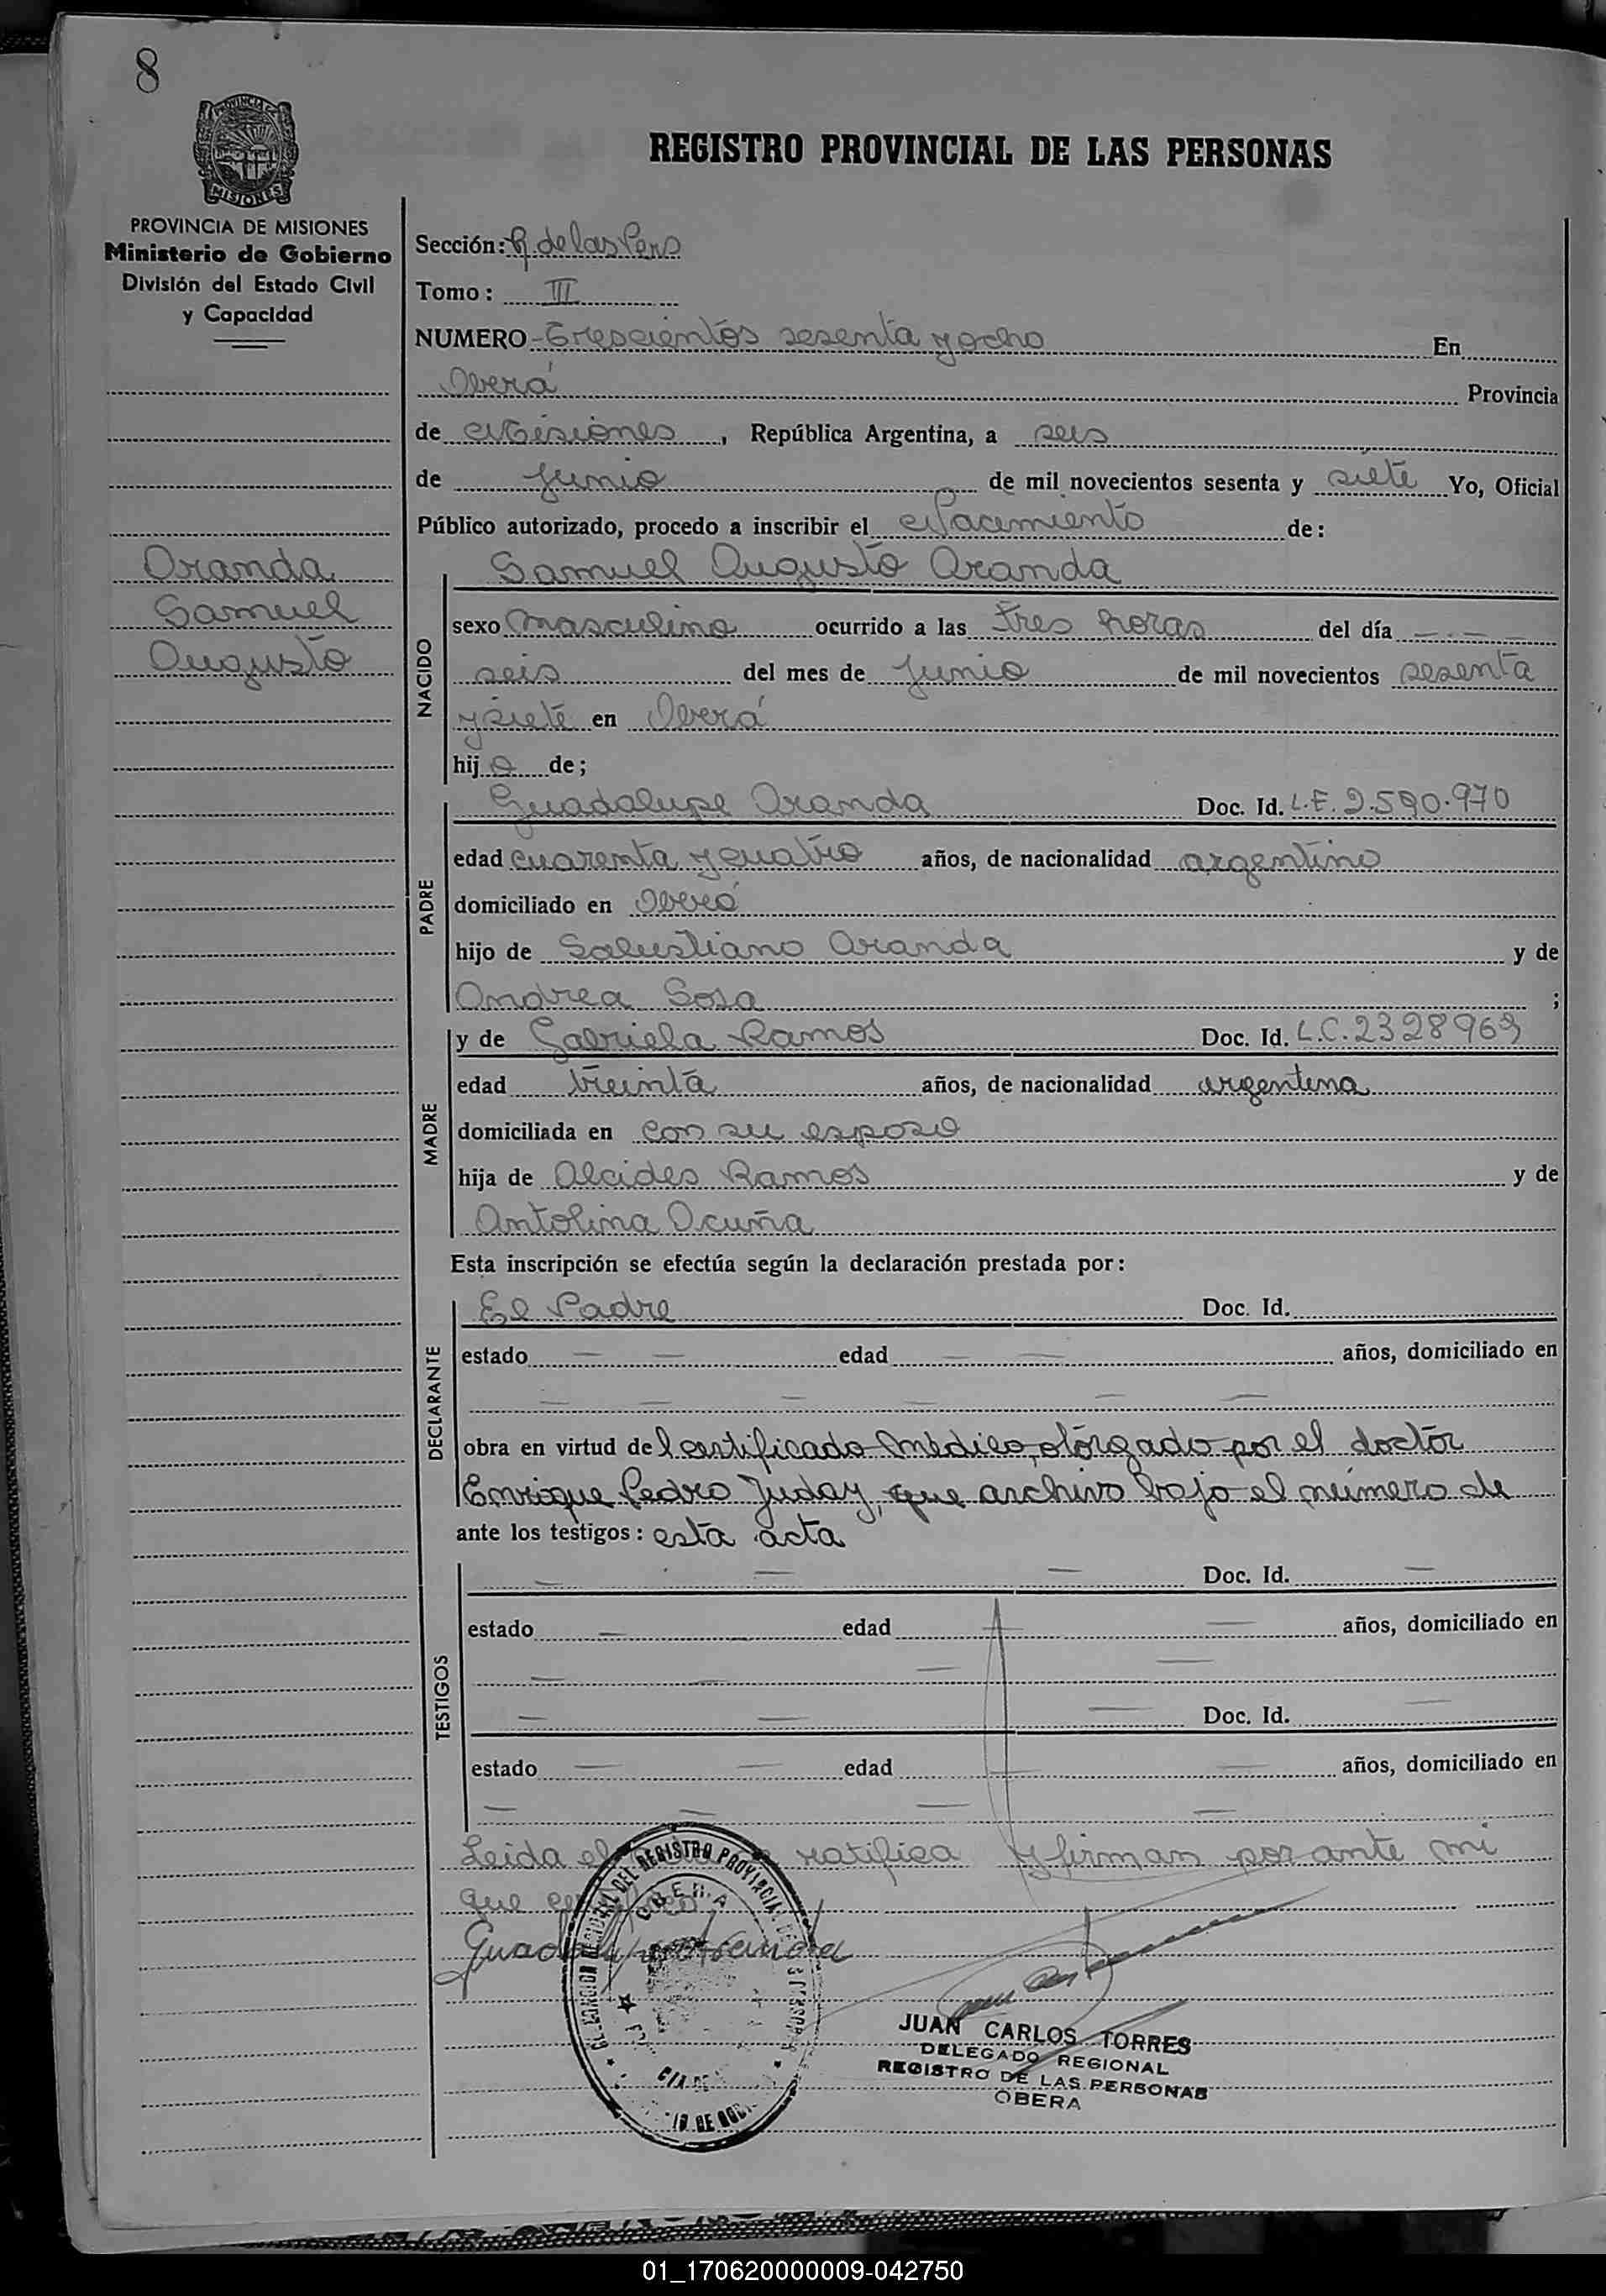 8
PROVINCIA DE
MISIONES
REGISTRO PROVINCIAL DE LAS PERSONAS
PROVINCIA DE MISIONES
Ministerio de Gobierno
División del Estado Civil
y Capacidad
Sección: R. de las Pers
Tomo: III
NUMERO - Trescientos sesenta y ocho En
Oberá Provincia
de Misiones, República Argentina, a seis
de Junio de mil novecientos sesenta y siete Yo, Oficial
Público autorizado, procedo a inscribir el Nacimiento de:
Aranda
Samuel
Augusto
NACIDO
Samuel Augusto Aranda
sexo Masculino ocurrido a las tres horas del día - - -
seis del mes de Junio de mil novecientos sesenta
y siete en Oberá
hijo de;
PADRE
Guadalupe Aranda Doc. Id. L.E. 2.590.970
edad cuarenta y cuatro años, de nacionalidad argentino
domiciliado en Oberá
hijo de Salustiano Aranda y de
Andrea Sosa ;
MADRE
y de Gabriela Ramos Doc. Id. L.C. 2328969
edad treinta años, de nacionalidad argentina
domiciliada en con su esposo
hija de Alcides Ramos y de
Antolina Acuña
Esta inscripción se efectúa según la declaración prestada por:
DECLARANTE
El Padre Doc. Id.
estado — — edad — — años, domiciliado en
— — — — — —
obra en virtud del certificado médico, otórgado por el doctor
Enrique Pedro Juday, que archivo bajo el número de
ante los testigos: esta acta
TESTIGOS
— — — Doc. Id. —
estado — edad — — años, domiciliado en
— — — —
— — — Doc. Id. —
estado — — edad — — años, domiciliado en
— — — —
Leida el ratifica y firman por ante mi
que
Guadalupe Aranda
DEL REGISTRO PROVINCIAL
OBERA
JUAN CARLOS TORRES
DELEGADO REGIONAL
REGISTRO DE LAS PERSONAS
OBERA
01_170620000009-042750